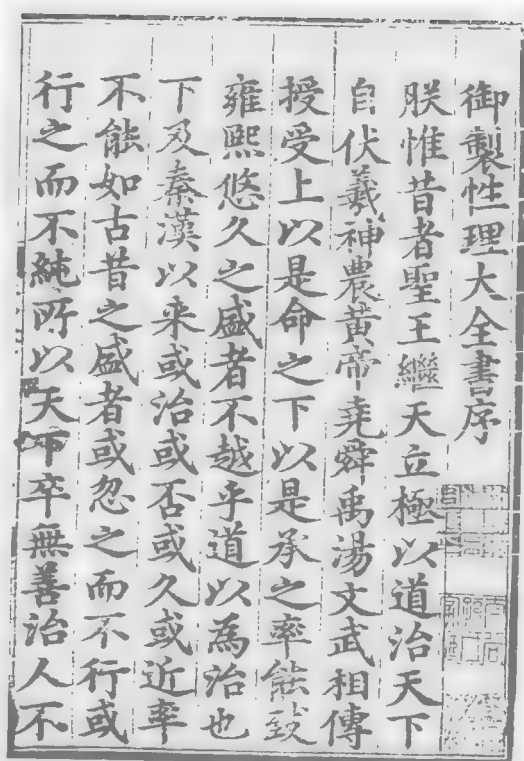 御製性理大全書序
朕惟昔者聖王繼天立極以道治天下
自伏羲神農黃帝堯舜禹湯文武相傳
授受上以是命之下以是承之率能致
雍熙悠久之盛者不越乎道以為治也
下及秦漢以来或治或否或久或近率
不能如古昔之盛者或忽之而不行或
行之而不純所以天下卒無善治人不